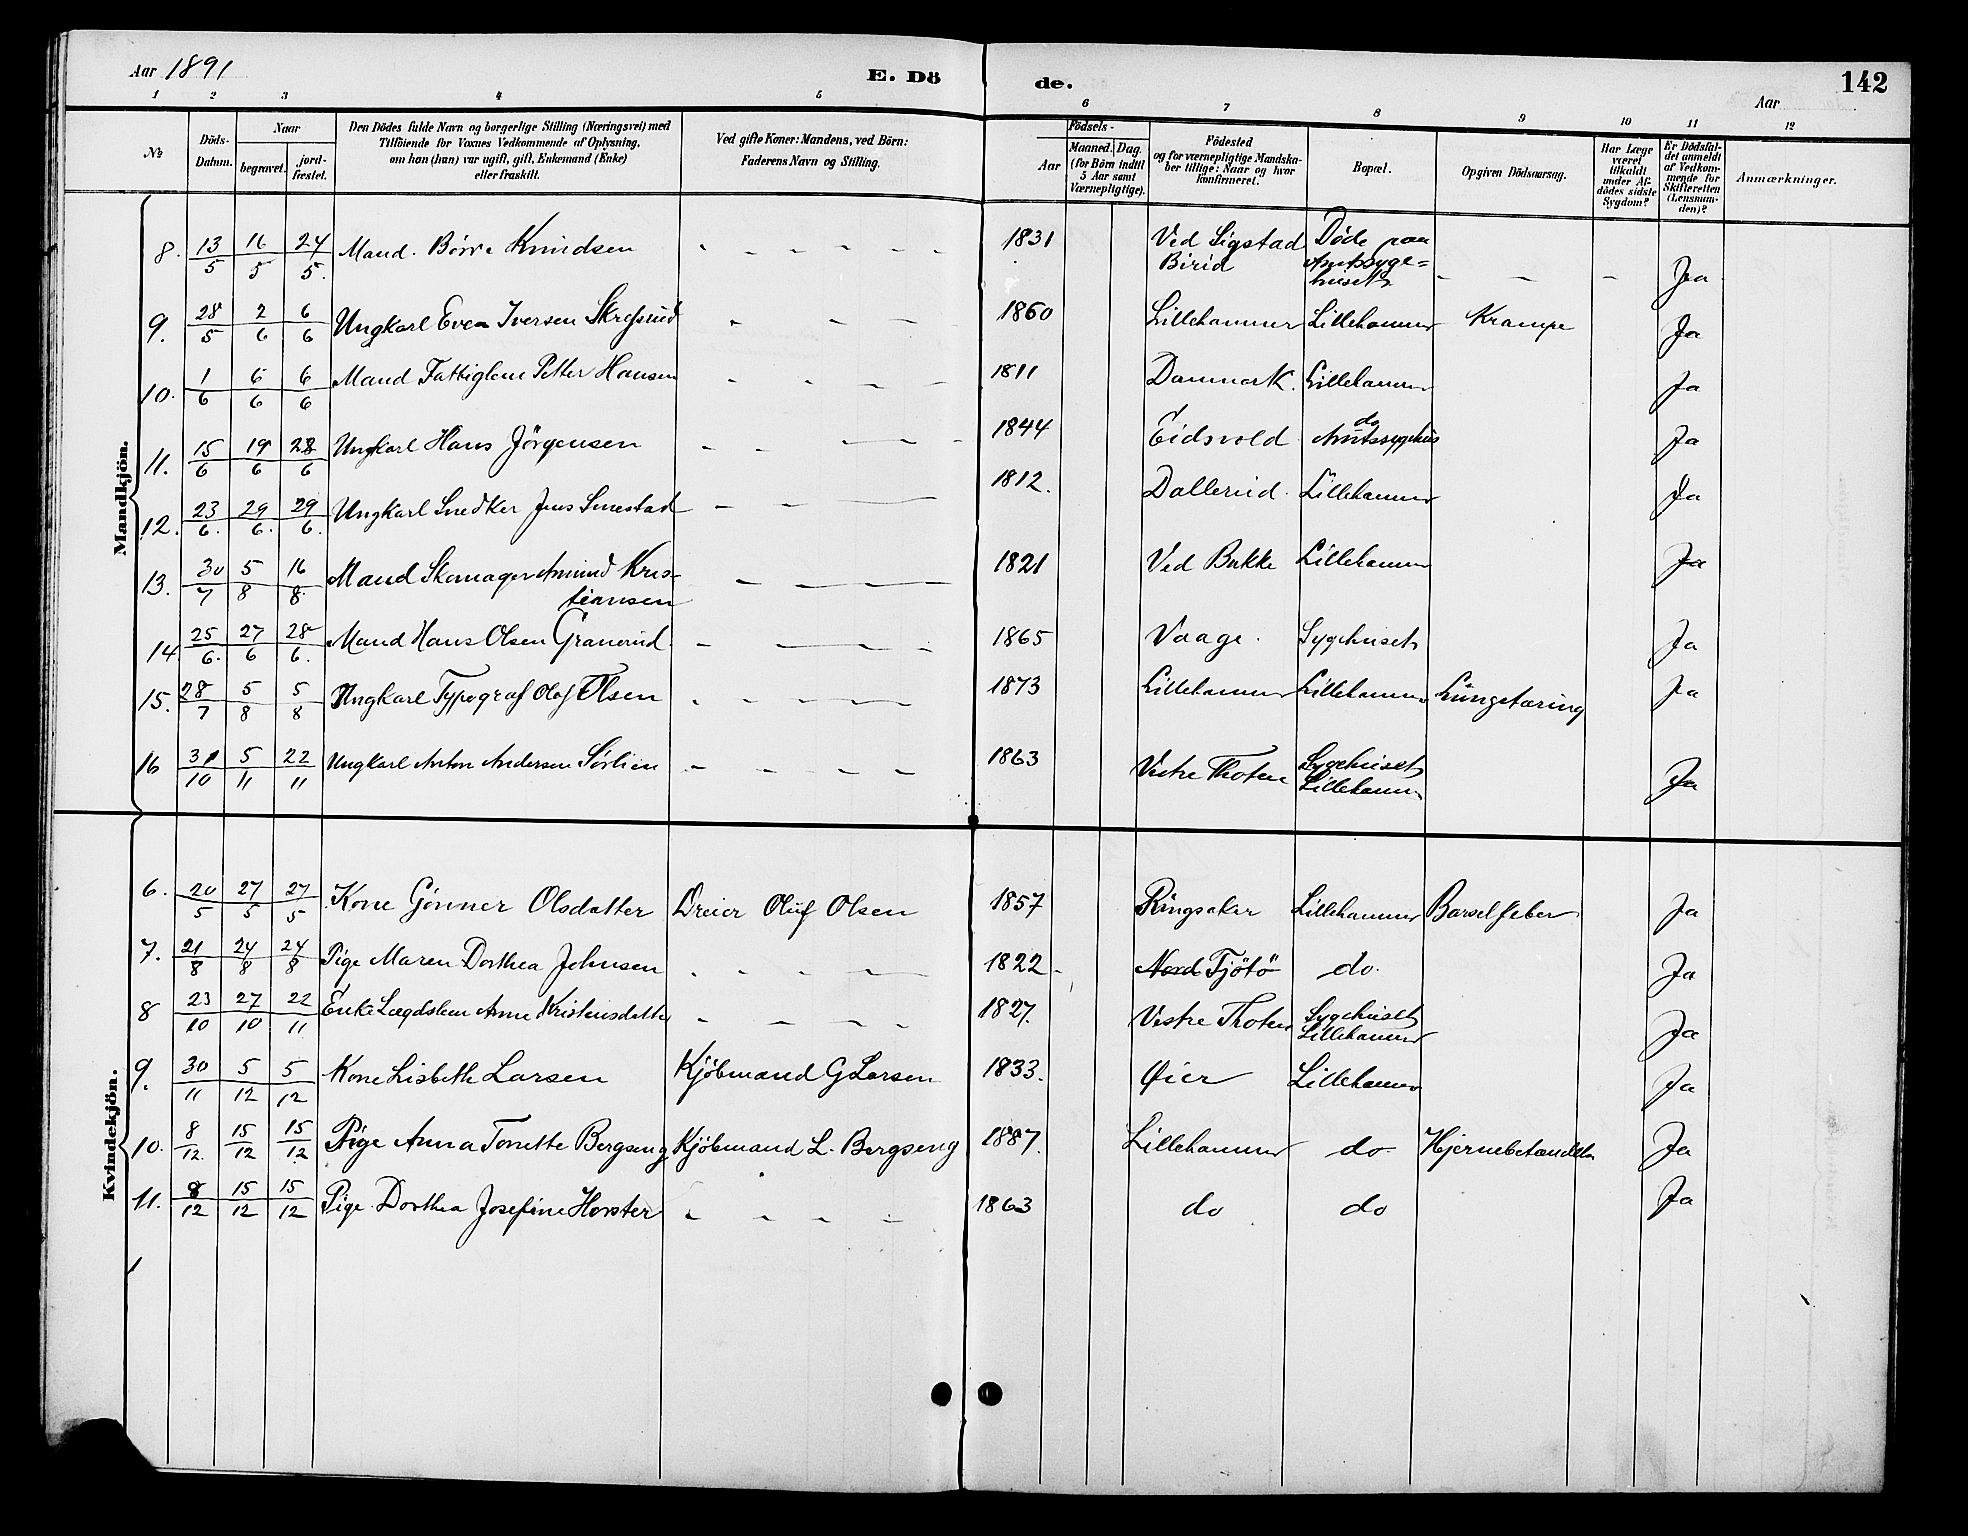 Aar 1891
E. Dö
de.
142
Aar
1 2 3 4 5 6 7 8 9 10 11 12
No
Döds-Datum.
Naar
begravet.
jord-fæstet.
Den Dödes fulde Navn og borgerlige Stilling (Næringsvei) med
Tilföiende for Voxnes Vedkommende af Oplysning,
om han (hun) var ugift, gift, Enkemand (Enke)
eller fraskilt.
Ved gifte Koner: Mandens, ved Börn:
Faderens Navn og Stilling.
Födsels-
Aar
Maaned. Dag.
(for Börn indtil
5 Aar samt
Værnepligtige).
Födested
og for værnepligtige Mandska-
ber tillige: Naar og hvor
konfirmeret.
Bopæl.
Opgiven Dödsaarsag.
Har Læge
været
tilkaldt
under Af-
dödes sidste
Sygdom?
Er Dödsfal-
det anmeldt
af Vedkom-
mende for
Skifteretten
(Lensman-
den)?
Anmærkninger.
Mandkjön.
8. 13/5 16/5 24/5. Mand. Börre Knudsen - - - - - 1831 Ved Sigstad Birid Døde paa Amtssyge=huset - - - Ja
9. 28/5 2/6 6/6 Ungkarl Even Iversen Skrefsrud - - - 1860 Lillehammer Lillehammer Krampe Ja
10. 1/6 6/6 6/6 Mand Fattiglem Petter Hansen - - - - 1811 Danmark. Lillehammer Ja
11. 15/6 19/6 28/6 Ungkarl Hans Jörgensen - - - - - 1844 Eidsvold do Amtssygehus Ja
12. 23/6. 29/6. 29/6. Ungkarl Snedker Jens Smestad - - - 1812. Dallerud. Lillehammer Ja
13. 30/7 5/8 16/8. Mand Skomager Amund Kris-
tiansen - - - - 1821 Ved Bakke Lillehammer Ja
14. 25/6. 27/6 28/6. Mand Hans Olsen Granerud. - - - - 1865 Vaage. Sygehuset Ja
15. 28/7 5/8 5/8 Ungkarl Typograf Olaf Olsen - - - - - 1873 Lillehammer Lillehammer Lungetæring Ja
16 31/10 5/11 22/11 Ungkarl Anton Andersen Sörlien - - - - 1863 Vestre Thoten Sygehuset Lillehammer Ja
Kvindekjön.
6. 20/5 27/5 27/5 Kone Gönner Olsdatter Dreier Oluf Olsen 1857 Ringsaker Lillehammer Barselfeber Ja
7. 21/8 24/8 24/8 Pige Maren Dorthea Johnsen - - - - 1822 - Nord Tjötö do. Ja
8 23/10 27/10 22/11 Enke Lægdslem Anne Kristensdatter - - - - 1827. Vestre Thoten Sygehuset Lillehammer Ja
9. 30/11 5/12 5/12 Kone Lisbeth Larsen Kjöbmand G Larsen 1833. Øier Lillehammer Ja
10. 8/12. 15/12 15/12 Pige Anna Tonette Bergseng Kjöbmand L. Bergseng 1887. Lillehammer do Hjernebetændelse Ja
11. 8/12 15/12 15/12 Pige Dorthea Josefine Horster - - - - 1863 do do Ja